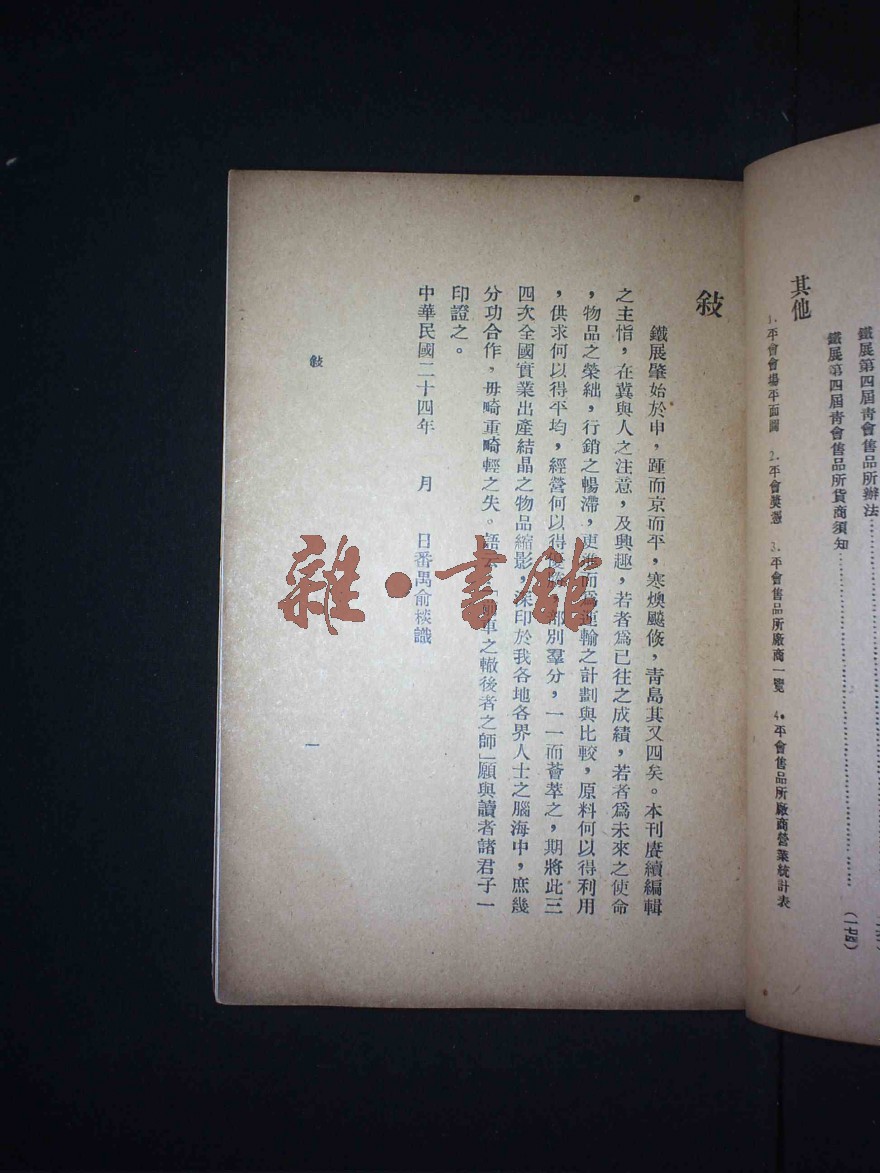 鐵展第四屆青會售品所辦法
鐵展第四屆青會售品所貨商須知 (一七四)
其他
1.平會會場平面圖 2.平會獎憑 3.平會售品所廠商一覽 4.平會售品所廠商營業統計表
敍
鐵展肇始於申，踵而京而平，寒燠飈倐，青島其又四矣。本刊賡續編輯
之主恉，在冀與人之注意，及興趣，若者爲已往之成績，若者爲未來之使命
，物品之榮絀，行銷之暢滯，更進而爲運輸之計劃與比較，原料何以得利用
，供求何以得平均，經營何以得 部別羣分，一一而薈萃之，期將此三
四次全國實業出產結晶之物品縮影，深印於我各地各界人士之腦海中，庶幾
分功合作，毋畸重畸輕之失。語 車之轍後者之師」願與讀者諸君子一
印證之。
中華民國二十四年 月 日番禺俞棪識
敍
一
雜·書館